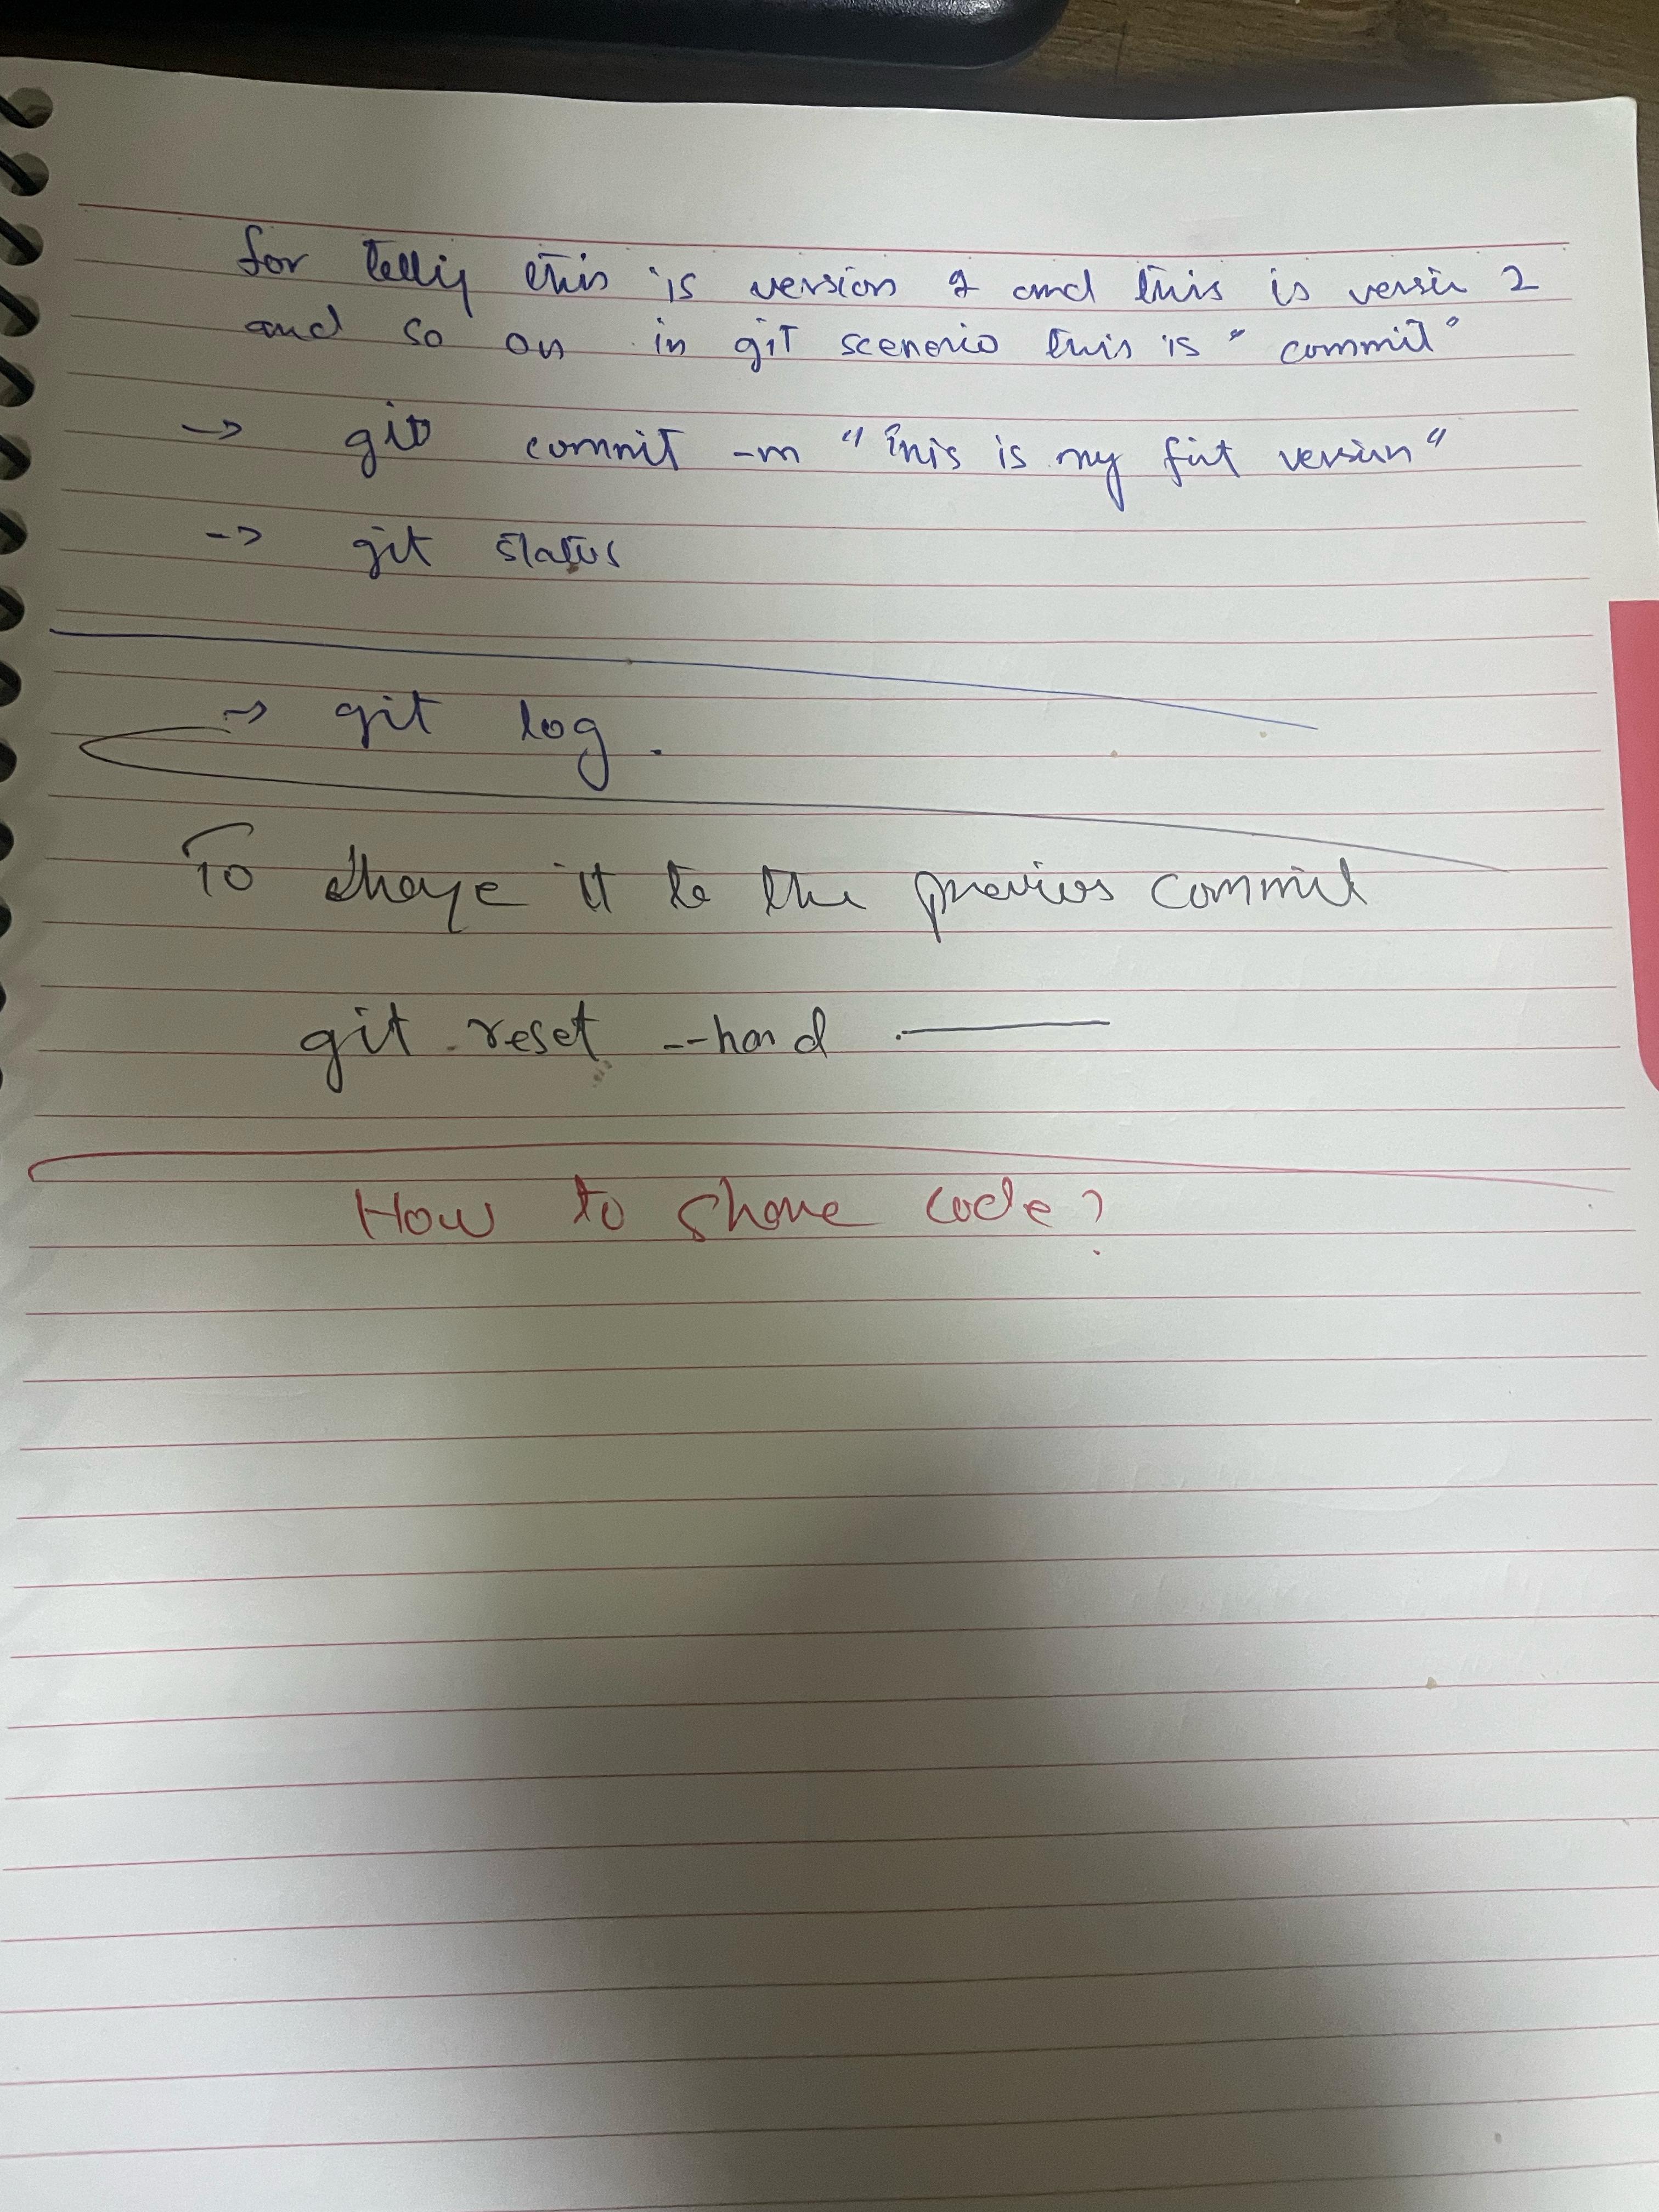 for telling this is version 1 and this is version 2
and so on in git scenerio this is "commit"
→ git commit -m "This is my first version"
→ git status
→ git log.
To change it to the previos commit
git reset --hard ———
How to share code?